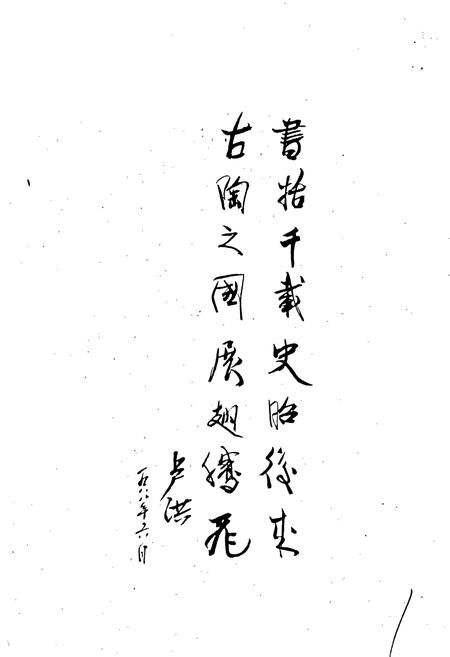 書括千載史昭後来
古陶之國展翅騰飛
卢洪
一九八八年六月